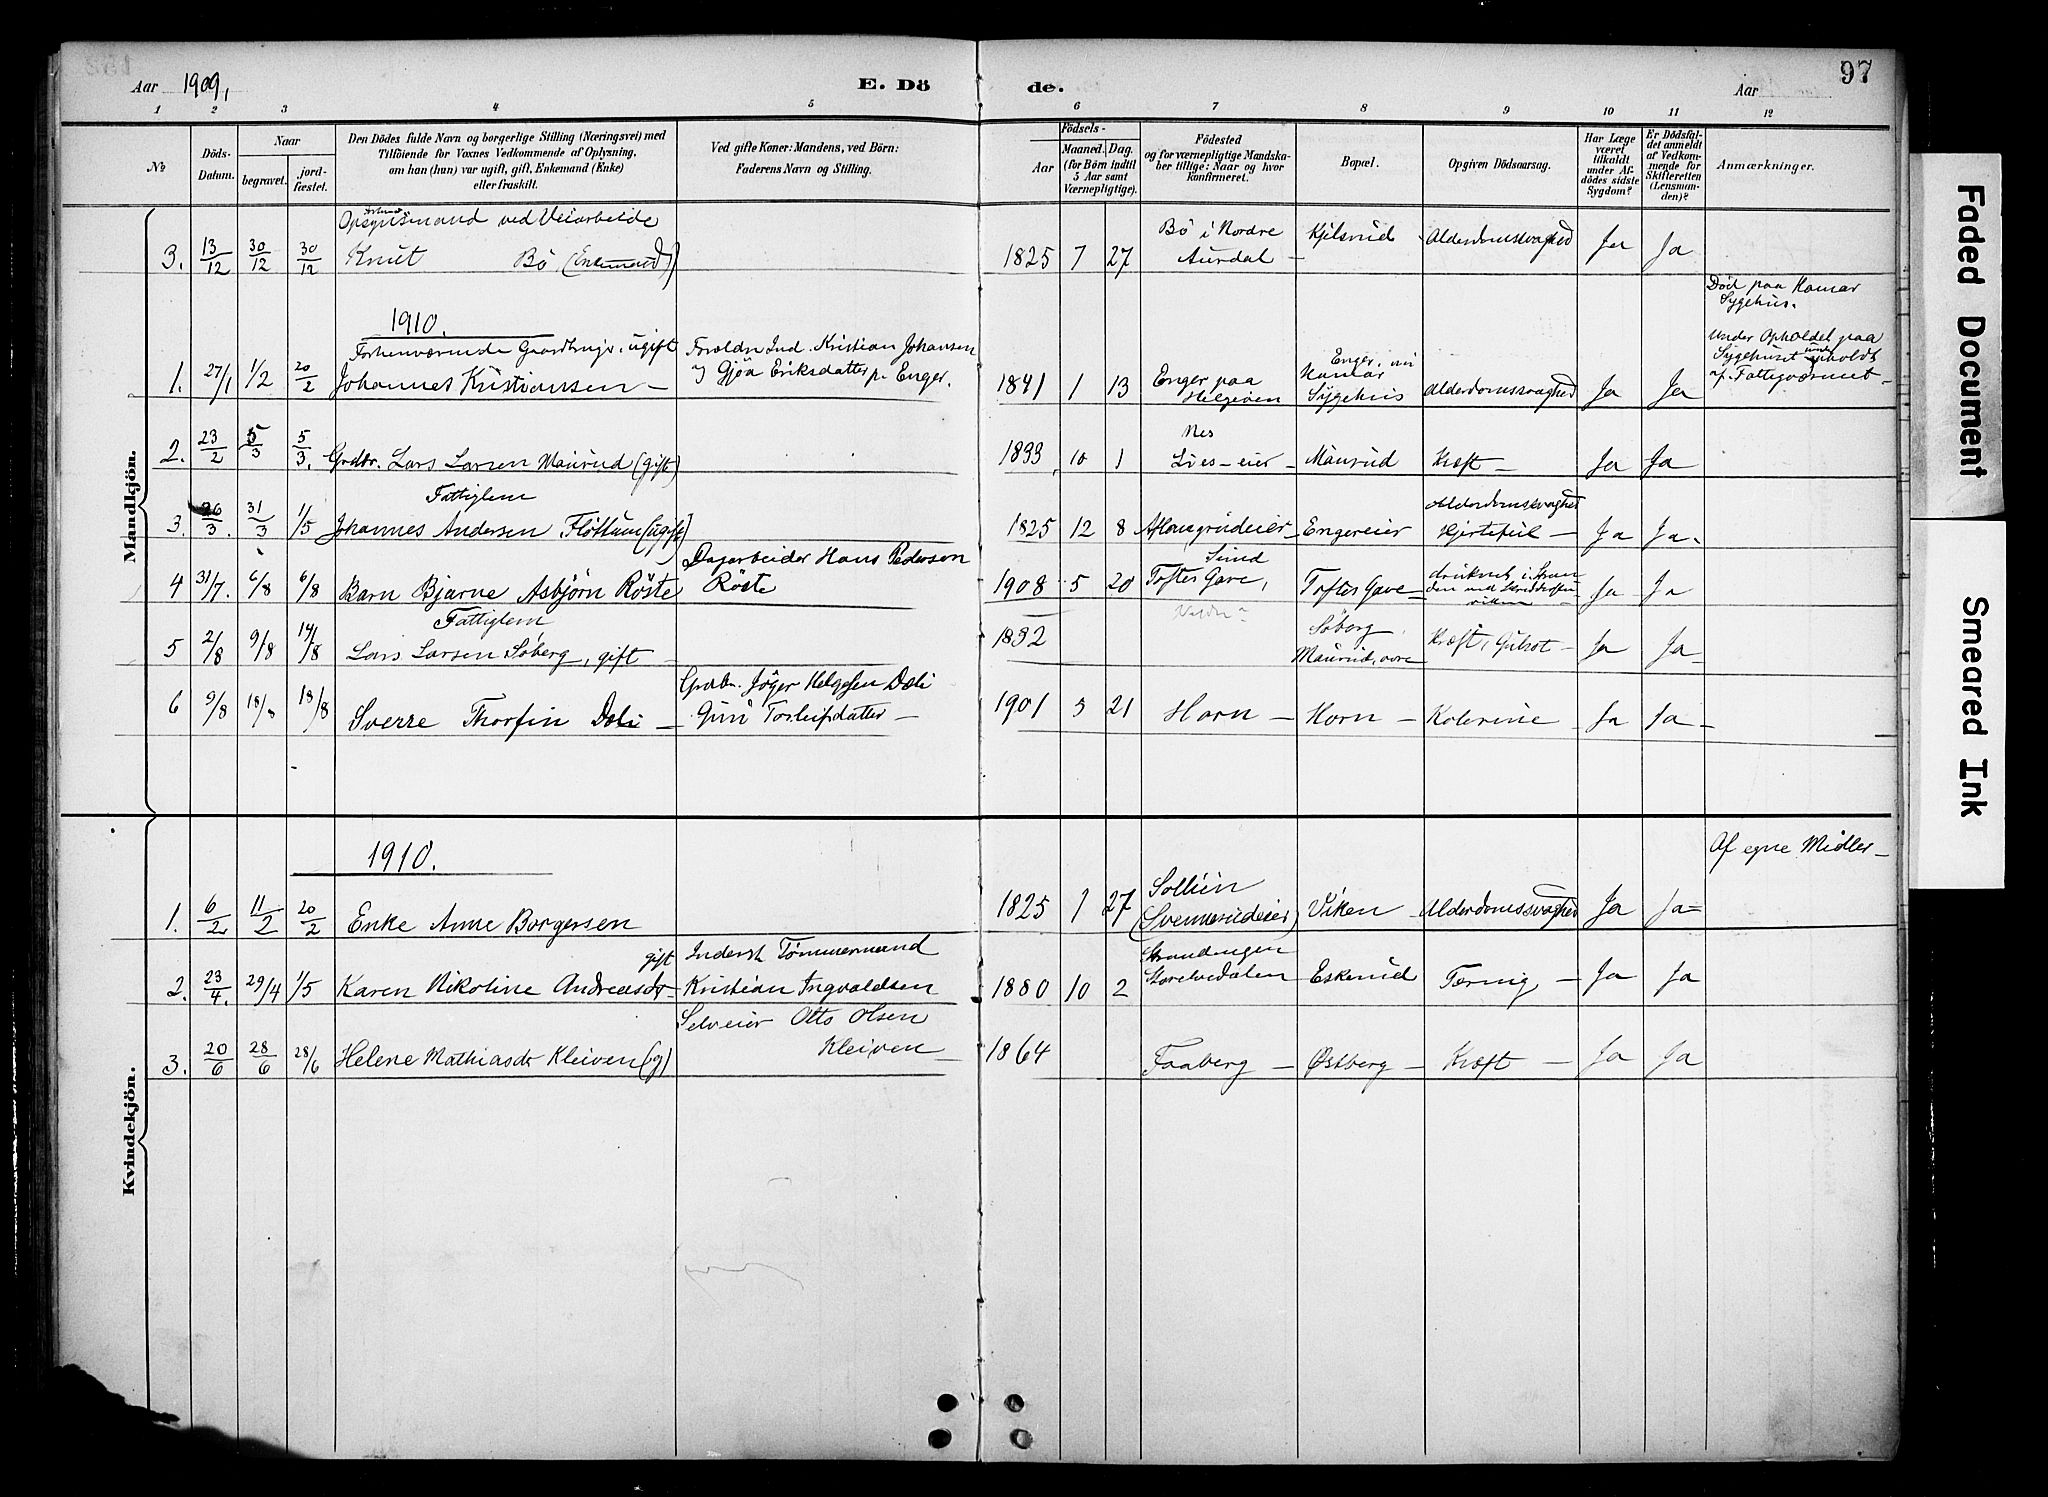 Aar 1909, E. Döde. Aar 97
1 2 3 4 5 6 7 8 9 10 11 12
No
Döds-Datum.
Naar
begravet.
jord-fæstet.
Den Dödes fulde Navn og borgerlige Stilling (Næringsvei) med
Tilföiende for Voxnes Vedkommende af Oplysning,
om han (hun) var ugift, gift, Enkemand (Enke)
eller fraskilt.
Ved gifte Koner: Mandens, ved Börn:
Faderens Navn og Stilling.
Födsels-
Aar
Maaned. Dag.
(for Börn indtil
5 Aar samt
Værnepligtige).
Födested
og for værnepligtige Mandska-
ber tillige: Naar og hvor
konfirmeret.
Bopæl.
Opgiven Dödsaarsag.
Har Læge
været
tilkaldt
under Af-
dödes sidste
Sygdom?
Er Dödsfal-
det anmeldt
af Vedkom-
mende for
Skifteretten
(Lensman-
den)?
Anmærkninger.
Mandkjön.
Opsynsmand ved Veiarbeide
3. 13/12 30/12 30/12 Knut Bö (Enkemand) 1825 7 27 Bö i Nordre Aurdal – Kjelsrud – Alderdomssvaghed Ja Ja
1910.
Forhenværende Gaardbrugr. ugift
1. 27/1 1/2 20/2 Johannes Kristiansen –
Foreldr. Ind. Kristian Johansen
og Gjöa Eriksdatter p. Enger.
1841 1 13 Enger paa Helgöen
Enger, nu Hamar Sygehus
Alderdomssvaghed Ja Ja
Död paa Hamar
Sygehus.
Under Opholdet paa
Sygehuset underholdt
af Fattigvæsenet –
2. 23/2 5/3 5/3. Grdbr. Lars Larsen Maurud (gift) 1833 10 1 Nes – eier – Maurud Kræft – Ja Ja
Fattiglem
3. 26/3. 31/3 1/5 Johannes Andersen Flöttum (ugift) 1825 12 8 – Engereier Alderdomssvaghed Hjertefeil – Ja Ja.
4 31/7. 6/8 6/8 Barn Bjarne Asbjörn Röste
Dagarbeider Hans Pedersen
Röste
1908 5 20 Toftes Gave, Sund Toftes Gave – druknet i Ja Ja
Fattiglem
5 2/8 9/8 14/8 Lars Larsen Söberg, gift – 1832 Söberg, Maurud, övre Kræft, Gulsot – Ja Ja –
6 9/8 18/8 18/8 Sverre Thorfin Dæli –
Grdbr. Jöger Helgesen Dæli
Guri Torleifsdatter –
1901 3 21 Horn – Horn – Kolerine Ja Ja –
Kvindekjön.
1910.
1. 6/2. 11/2 20/2 Enke Anne Borgersen 1825 7 27 Sollien (Svennerudeier) Viken – Alderdomssvaghed Ja Ja =
Af egne Midler –
2. 23/4. 29/4 1/5 Karen Nikoline Andreasdr gift
Inderst Tömmermand
Kristian Ingvaldsen
1880 10 2 Strandengen Storelvedalen Eskerud Tæring – Ja Ja
3. 20/6 28/6 28/6 Helene Mathiasdr Kleiven (g)
Selveier Otto Olsen
Kleiven –
1864 Faaberg – Østberg – Kræft – Ja Ja
Faded Document
Smeared Ink